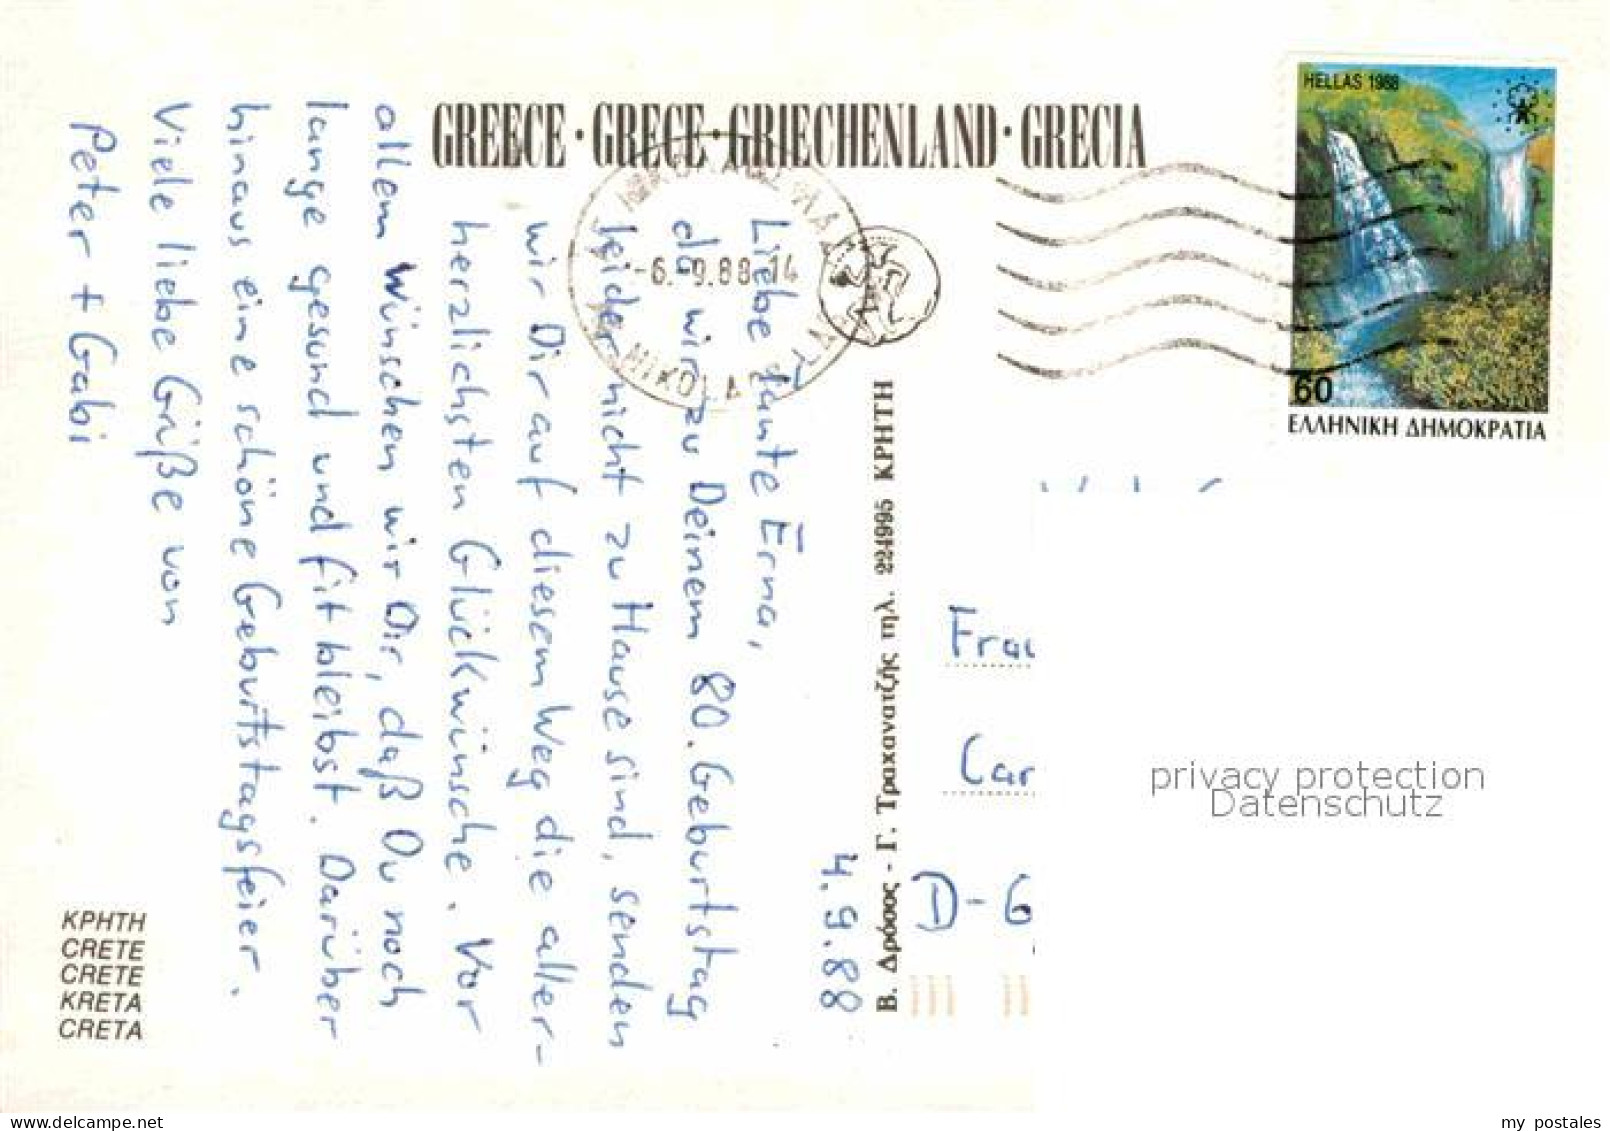 GREECE · GRECE · GRIECHENLAND · GRECIA
HELLAS 1988
60
ΕΛΛΗΝΙΚΗ ΔΗΜΟΚΡΑΤΙΑ
-6.-9.88-14
4.9.88
Liebe Tante Erna,
da wir zu Deinem 80. Geburtstag
leider nicht zu Hause sind, senden
wir Dir auf diesem Weg die aller-
herzlichsten Glückwünsche. Vor
allem wünschen wir Dir, daß Du noch
lange gesund und fit bleibst. Darüber
hinaus eine schöne Geburtstagsfeier.
Viele liebe Grüße von
Peter + Gabi
Β. Δρόσος - Γ. Τραχανατζής τηλ. 224995 ΚΡΗΤΗ
Frau
Car
D-6
privacy protection
Datenschutz
ΚΡΗΤΗ
CRETE
CRETE
KRETA
CRETA
my postales